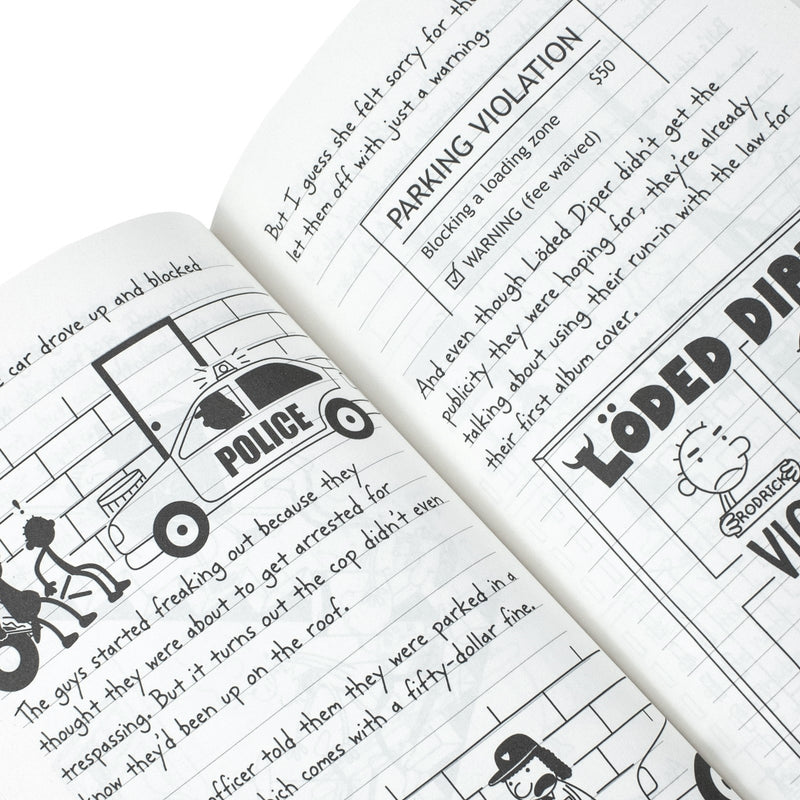 car drove up and blocked
POLICE
!
The guys started freaking out because they
thought they were about to get arrested for
trespassing. But it turns out the cop didn't even
know they'd been up on the roof.
officer told them they were parked in a
which comes with a fifty-dollar fine.
But I guess she felt sorry for
let them off with just a warning.
PARKING VIOLATION
Blocking a loading zone $50
☑ WARNING (fee waived)
And even though Löded Diper didn't get the
publicity they were hoping for, they're already
talking about using their run-in with the law for
their first album cover.
LÖDED DIPER
RODRICK